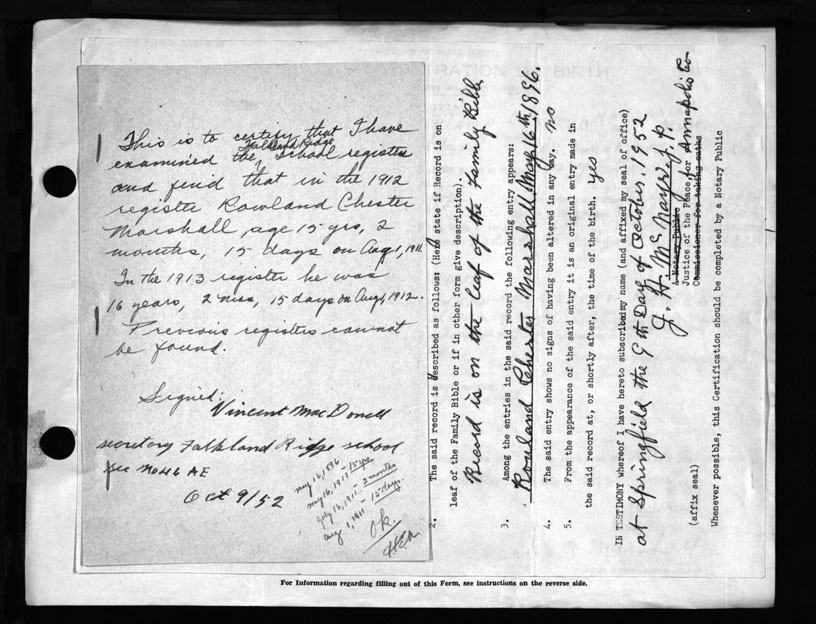 This is to certify that I have
examined the Falkland Ridge School register
and find that in the 1912
register Rowland Chester
Marshall, age 15 yrs, 2
months, 15 days on Aug 1, 1911
In the 1913 register he was
16 years, 2 mos, 15 days on Aug 1, 1912.
Previous registers cannot
be found.
Signed:
Vincent MacDonell
secretary Falkland Ridge school
sec No 46 A E
Oct 9/52
May 16, 1896
May 16, 1911 – 15 yrs
July 16, 1911 – 2 months
Aug 1, 1911 – 15 days.
O.k.
2. The said record is described as follows: (Here state if Record is on
leaf of the Family Bible or if in other form give description).
Record is on the leaf of the Family Bible
3. Among the entries in the said record the following entry appears:
Rowland Chester Marshall. May 16th, 1896.
4. The said entry shows no signs of having been altered in any way. no
5. From the appearance of the said entry it is an original entry made in
the said record at, or shortly after, the time of the birth. yes
IN TESTIMONY whereof I have hereto subscribed my name (and affixed my seal of office)
at Springfield the 9th Day of October, 1952
J. H. McNayr, J. P.
A Notary Public
Justice of the Peace, for Annapolis Co
Commissioner for taking oaths
(affix seal)
Whenever possible, this Certification should be completed by a Notary Public
For Information regarding filling out of this Form, see instructions on the reverse side.